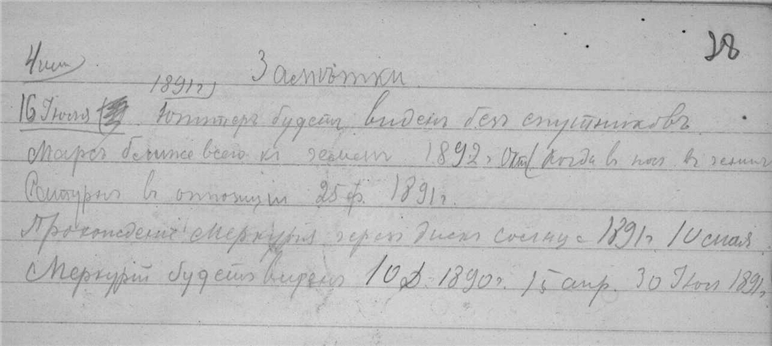 28
Замѣтки
1891 г.
16 Юпитеръ будетъ виденъ безъ спутниковъ.
Марсъ ближе всего къ землѣ 1892 г. (когда в
Сатурнъ въ оппозиции 25 ф. 1891 г.
Прохожденіе Меркурія черезъ дискъ солнца 1891 г. 10 мая.
Меркурій будетъ виденъ 10 Д. 1890 г. 15 апр. 30 1891 г.